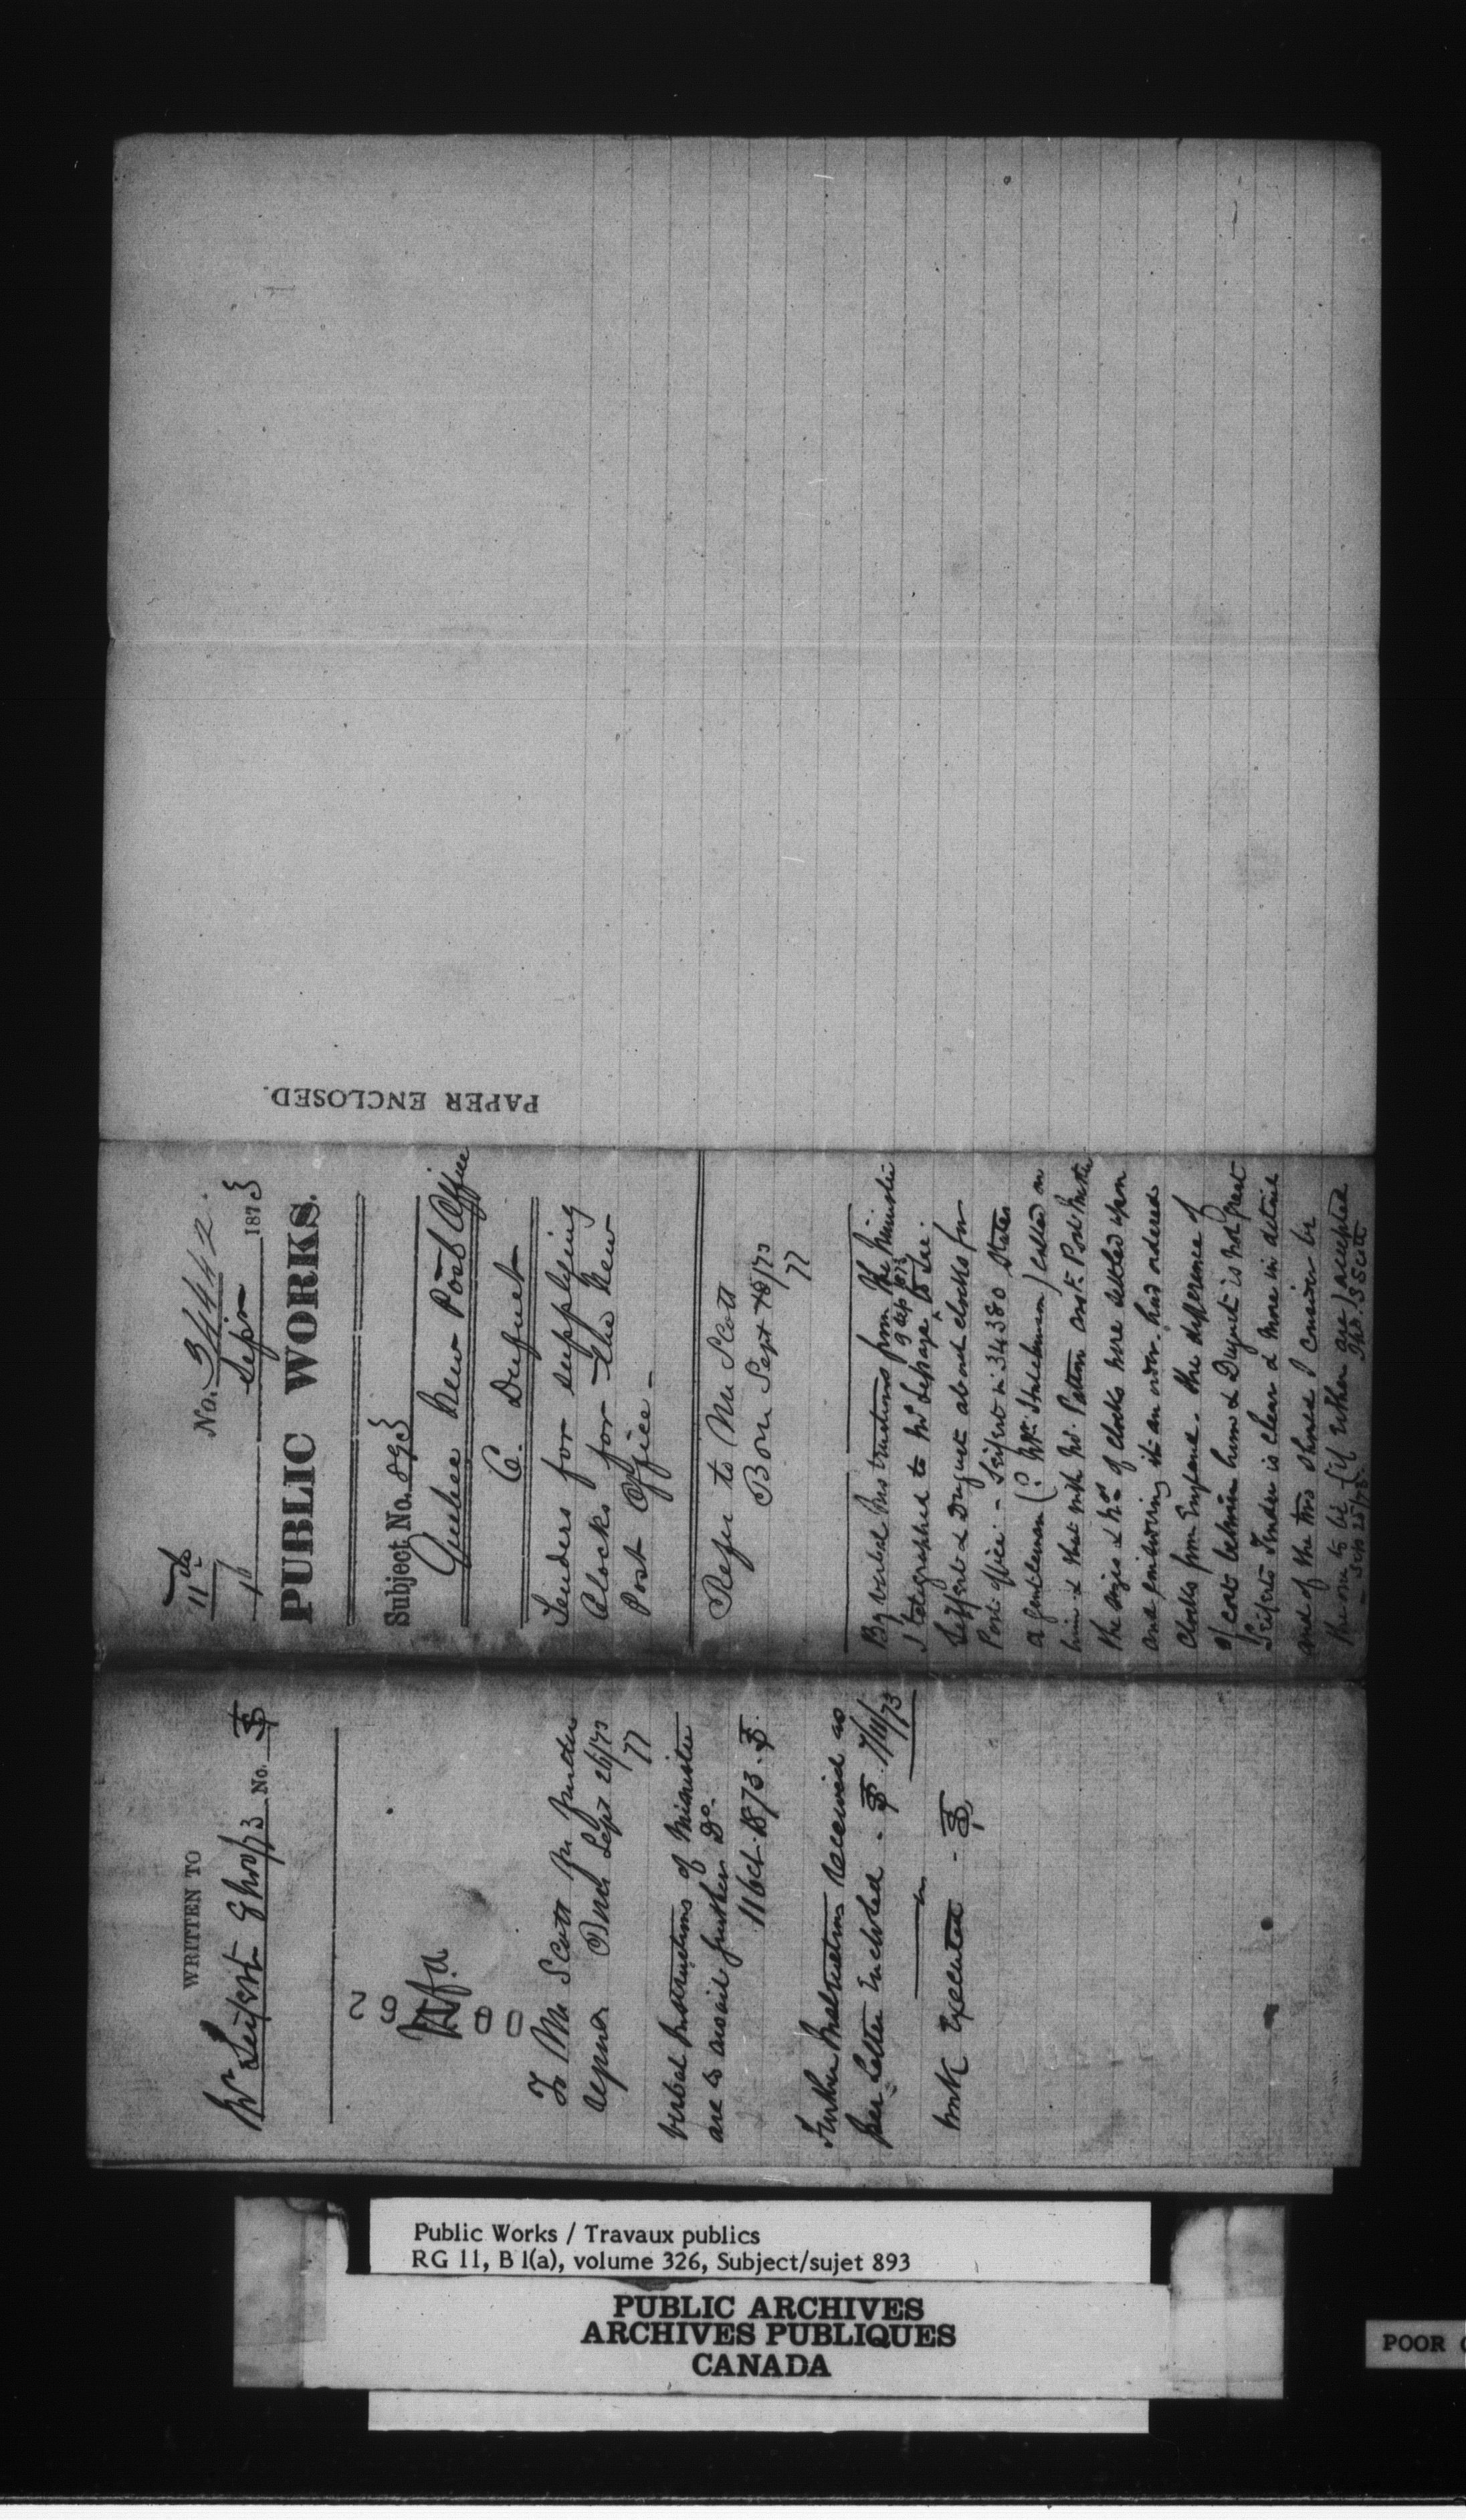 PAPER ENCLOSED.
11th
No. 34442
1 Sepr 1873
PUBLIC WORKS.
Subject No. 893
Quebec New Post Office
C. Duquet
Tenders for supplying
Clocks for the New
Post Office -
Refer to Mr Scott
Sept 18/73
By verbal Instructions from The Minister
I telegraphed to Mr Lepage 9 Sep 1873 to see
Seifert & Duquet about clocks for
Post Office - Seifert in 34380 states
a gentleman (? Mr. Steckman) called on
him & that with Mr. Patton asst. Post Master
the sizes & Nos of clocks were settled upon
and following it an order had ordered
Clocks from England. The difference of
of cost between him & Duquet is not great
Seiferts Tender is clear & more in detail
and of the two should I consider be
the one to be (if either are) accepted
- Sep 25/73. Thos. S Scott
WRITTEN TO
Mr Seifert 8 Nov/73 No.
29
00
To Mr Scott for further
Sept 26/73
verbal Instructions of Minister
are to await further Do.
11 Oct. 1873.
Further Instructions received as
per letter Enclosed. 7/11/73
work Executed -
Public Works / Travaux publics
RG 11, B 1(a), volume 326, Subject/sujet 893
PUBLIC ARCHIVES
ARCHIVES PUBLIQUES
CANADA
POOR